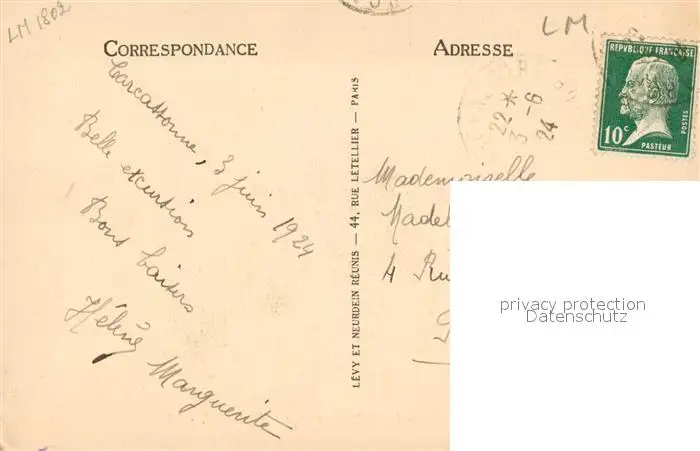 LM 1802
LM
CORRESPONDANCE
ADRESSE
REPVBLIQUE FRANÇAISE
10c
POSTES
PASTEUR
22*
3-6
24
Carcassonne, 3 juin 1924
Belle excursion
Bons baisers
Hélène
Marguerite
LÉVY ET NEURDEIN RÉUNIS — 44, RUE LETELLIER — PARIS
Mademoiselle
Madel
4 Ru
privacy protection
Datenschutz